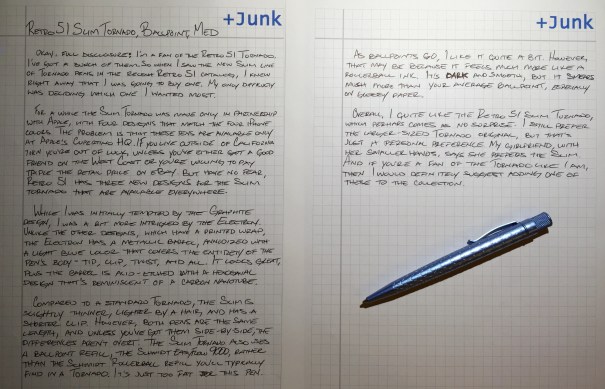 +Junk
Retro 51 Slim Tornado, Ballpoint, Med
Okay. Full disclosure: I'm a fan of the Retro 51 Tornado.
I've got a bunch of them. So when I saw the new Slim line
of Tornado pens in the recent Retro 51 catalog, I knew
right away that I was going to buy one. My only difficulty
was deciding which one I wanted most.
For a while the Slim Tornado was made only in partnership
with Apple, with four designs that match the four iPhone
colors. The problem is that these pens are available only
at Apple's Cupertino HQ. If you live outside of California
then you're out of luck, unless you've either got a good
friend on the West Coast or you're willing to pay
triple the retail price on eBay. But have no fear,
Retro 51 has three new designs for the Slim
Tornado that are available everywhere.
While I was initially tempted by the Graphite
design, I was a bit more intrigued by the Electron.
Unlike the other designs, which have a printed wrap,
the Electron has a metallic barrel, anodized with
a light blue color that covers the entirety of the
pen's body - tip, clip, twist, and all. It looks great,
plus the barrel is acid-etched with a hexagonal
design that's reminiscent of a carbon nanotube.
Compared to a standard Tornado, the Slim is
slightly thinner, lighter by a hair, and has a
shorter clip. However, both pens are the same
length, and unless you've got them side-by-side, the
differences aren't overt. The Slim Tornado also uses
a ballpoint refill, the Schmidt EasyFlow 9000, rather
than the Schmidt Rollerball refill you'll typically
find in a Tornado. It's just too fat for this pen.
+Junk
As ballpoints go, I like it quite a bit. However,
that may be because it feels much more like a
rollerball ink. It's dark and smooth, but it smears
much more than your average ballpoint, especially
on glossy paper.
Overall, I quite like the Retro 51 Slim Tornado,
which perhaps comes as no surprise. I still prefer
the larger-sized Tornado original, but that's
just a personal preference. My girlfriend, with
her smaller hands, says she prefers the Slim.
And if you're a fan of the Tornado like I am,
then I would definitely suggest adding one of
these to the collection.